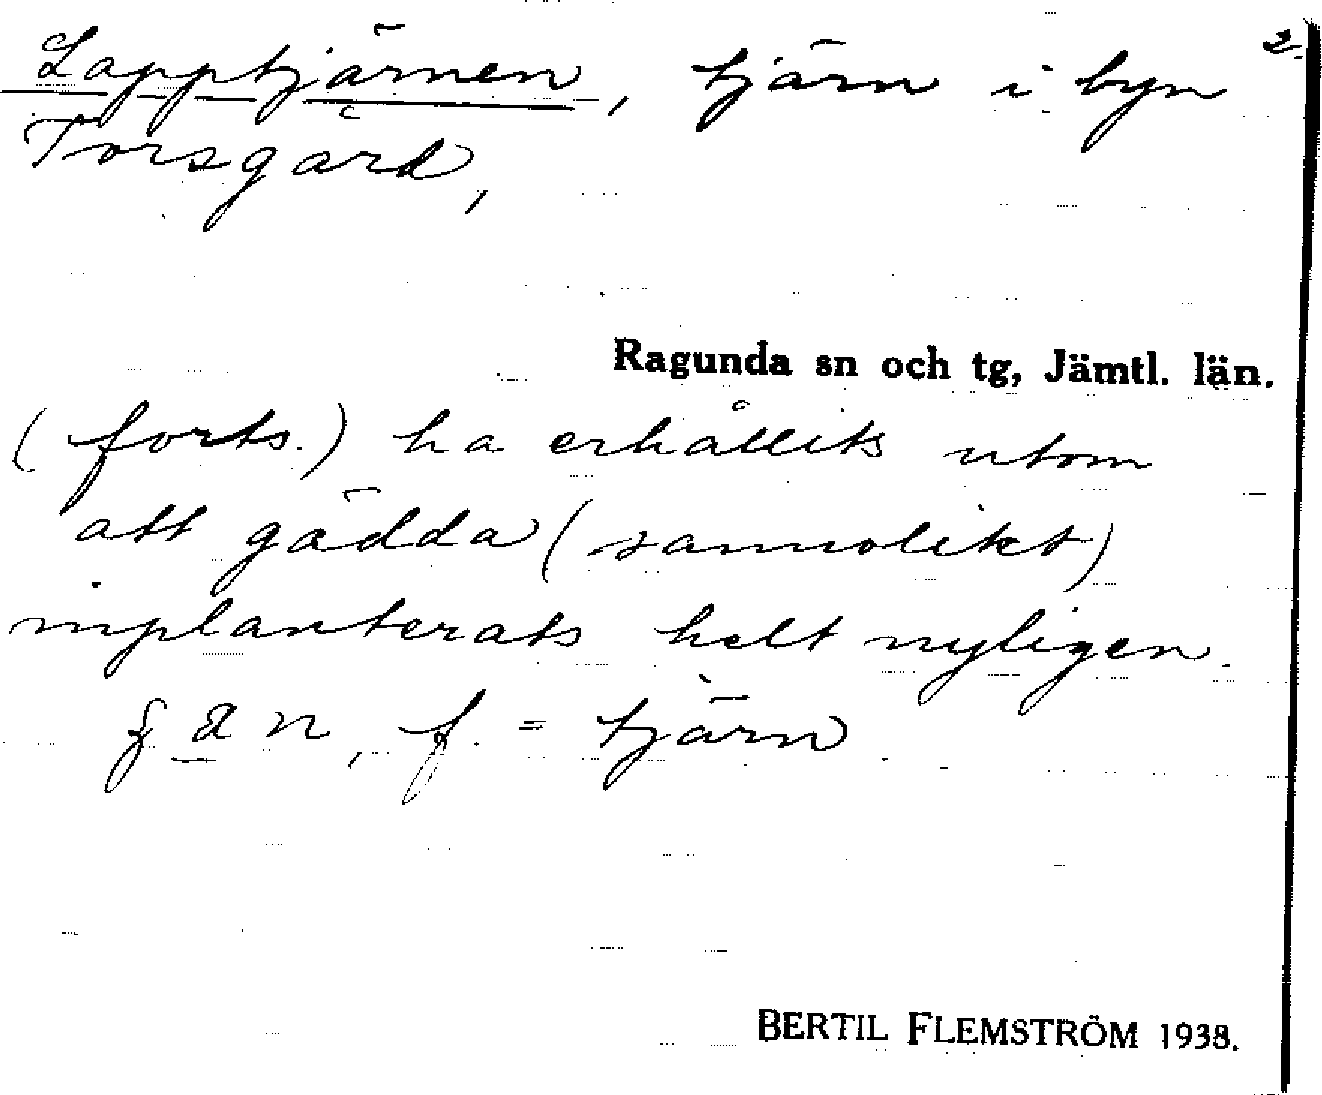 Lapptjärnen, tjärn i byn 2
Torsgård,
Ragunda sn och tg, Jämtl. län.
(forts.) ha erhållits utom
att gädda (sannolikt)
inplanterats helt nyligen.
f. = tjärn
BERTIL FLEMSTRÖM 1938.